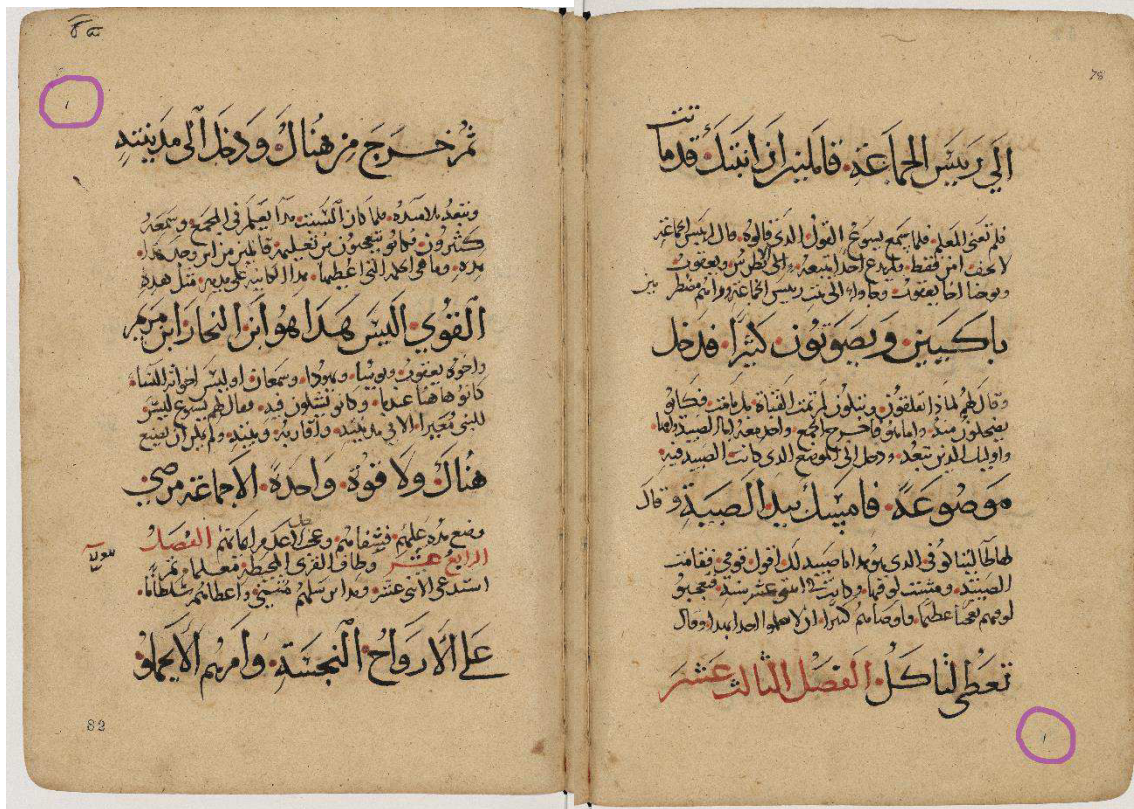 78
الي رييس الجماعة قايلين ان ابنتك قد ماتت
فلم تعنى المعلم فلما سمع يسوع القول الذي قالوه قال لرييس الجماعة
لا تخف امن فقط ولم يدع احدا يتبعه الا بطرس ويعقوب
ويوحنا اخا يعقوب وجاوا الى بيت رييس الجماعة وراهم مضطربين
باكيين ويصوتون كثيرا فدخل
وقال لهم لماذا تقلقون وتبكون لم تمت الفتاة بل نامت فكانو
يضحكون منه واما هو فاخرج الجمع واخذ معه ابا الصبية وامها
واوليك الذين معه ودخل الى الموضع الذي كانت الصبية فيه
موضوعة فامسك بيد الصبية وقال
قومي الذي هو يا صبيه لك اقول قومي فقامت
الصبيه ومشت لوقتها وكانت عشر سنة فتعجبو
لوقتهم تعجبا عظيما فاوصاهم كثيرا ان لا يعلموا احدا بهدا وقال
تعطى لتاكل الفصل الثالث عشر
ثم خرج من هناك ودخل الى مدينته
وتبعه تلاميده فلما كان السبت بدا يعلم في المجمع وسمعه
كثيرون فكانو يتعجبون من تعليمه قايلين من اين وجد هدا
هده وما هي الحكمه التي اعطيها هدا الكاينه على يديه مثل هده
القوي اليس هدا هو ابن النجار ابن مريم
واخوه يعقوب ويوسا ويهودا وسمعان اوليس اخواته النسا
كانو هاهنا عندنا وكانو يشكون فيه فقال لهم يسوع ليس
للنبي معيبرا الا في مدينته واقاربه وبيته ولم يكن ان يصنع
هناك ولا قوة واحدة الا جماعة مرضي
وضع يده عليهم فشفاهم وعجب لاجل قلة امانتهم الفصل
الرابع عشر وطاف القرى المحيطة معلما ثم
استدعى الاثني عشر وبدا يرسلهم اثنين واعطاهم سلطانا
على الارواح النجسة وامرهم الا يحملو
82